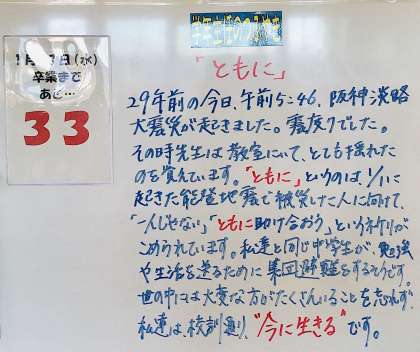 学年主任のつぶやき
1月17日(水)
卒業まで
あと…
33
「ともに」
29年前の今日、午前5:46、阪神淡路
大震災が起きました。震度7でした。
その時先生は教室にいて、とても揺れた
のを覚えています。「ともに」というのは、1/1に
起きた能登地震で被災した人に向けて、
「一人じゃない」「ともに助け合おう」というネガイが
こめられています。私達と同じ中学生が、勉強
や生活を送るために集団避難をするそうです。
世の中には大変な方がたくさんいることを忘れず、
私達は、校訓通り、"今に生きる"です。